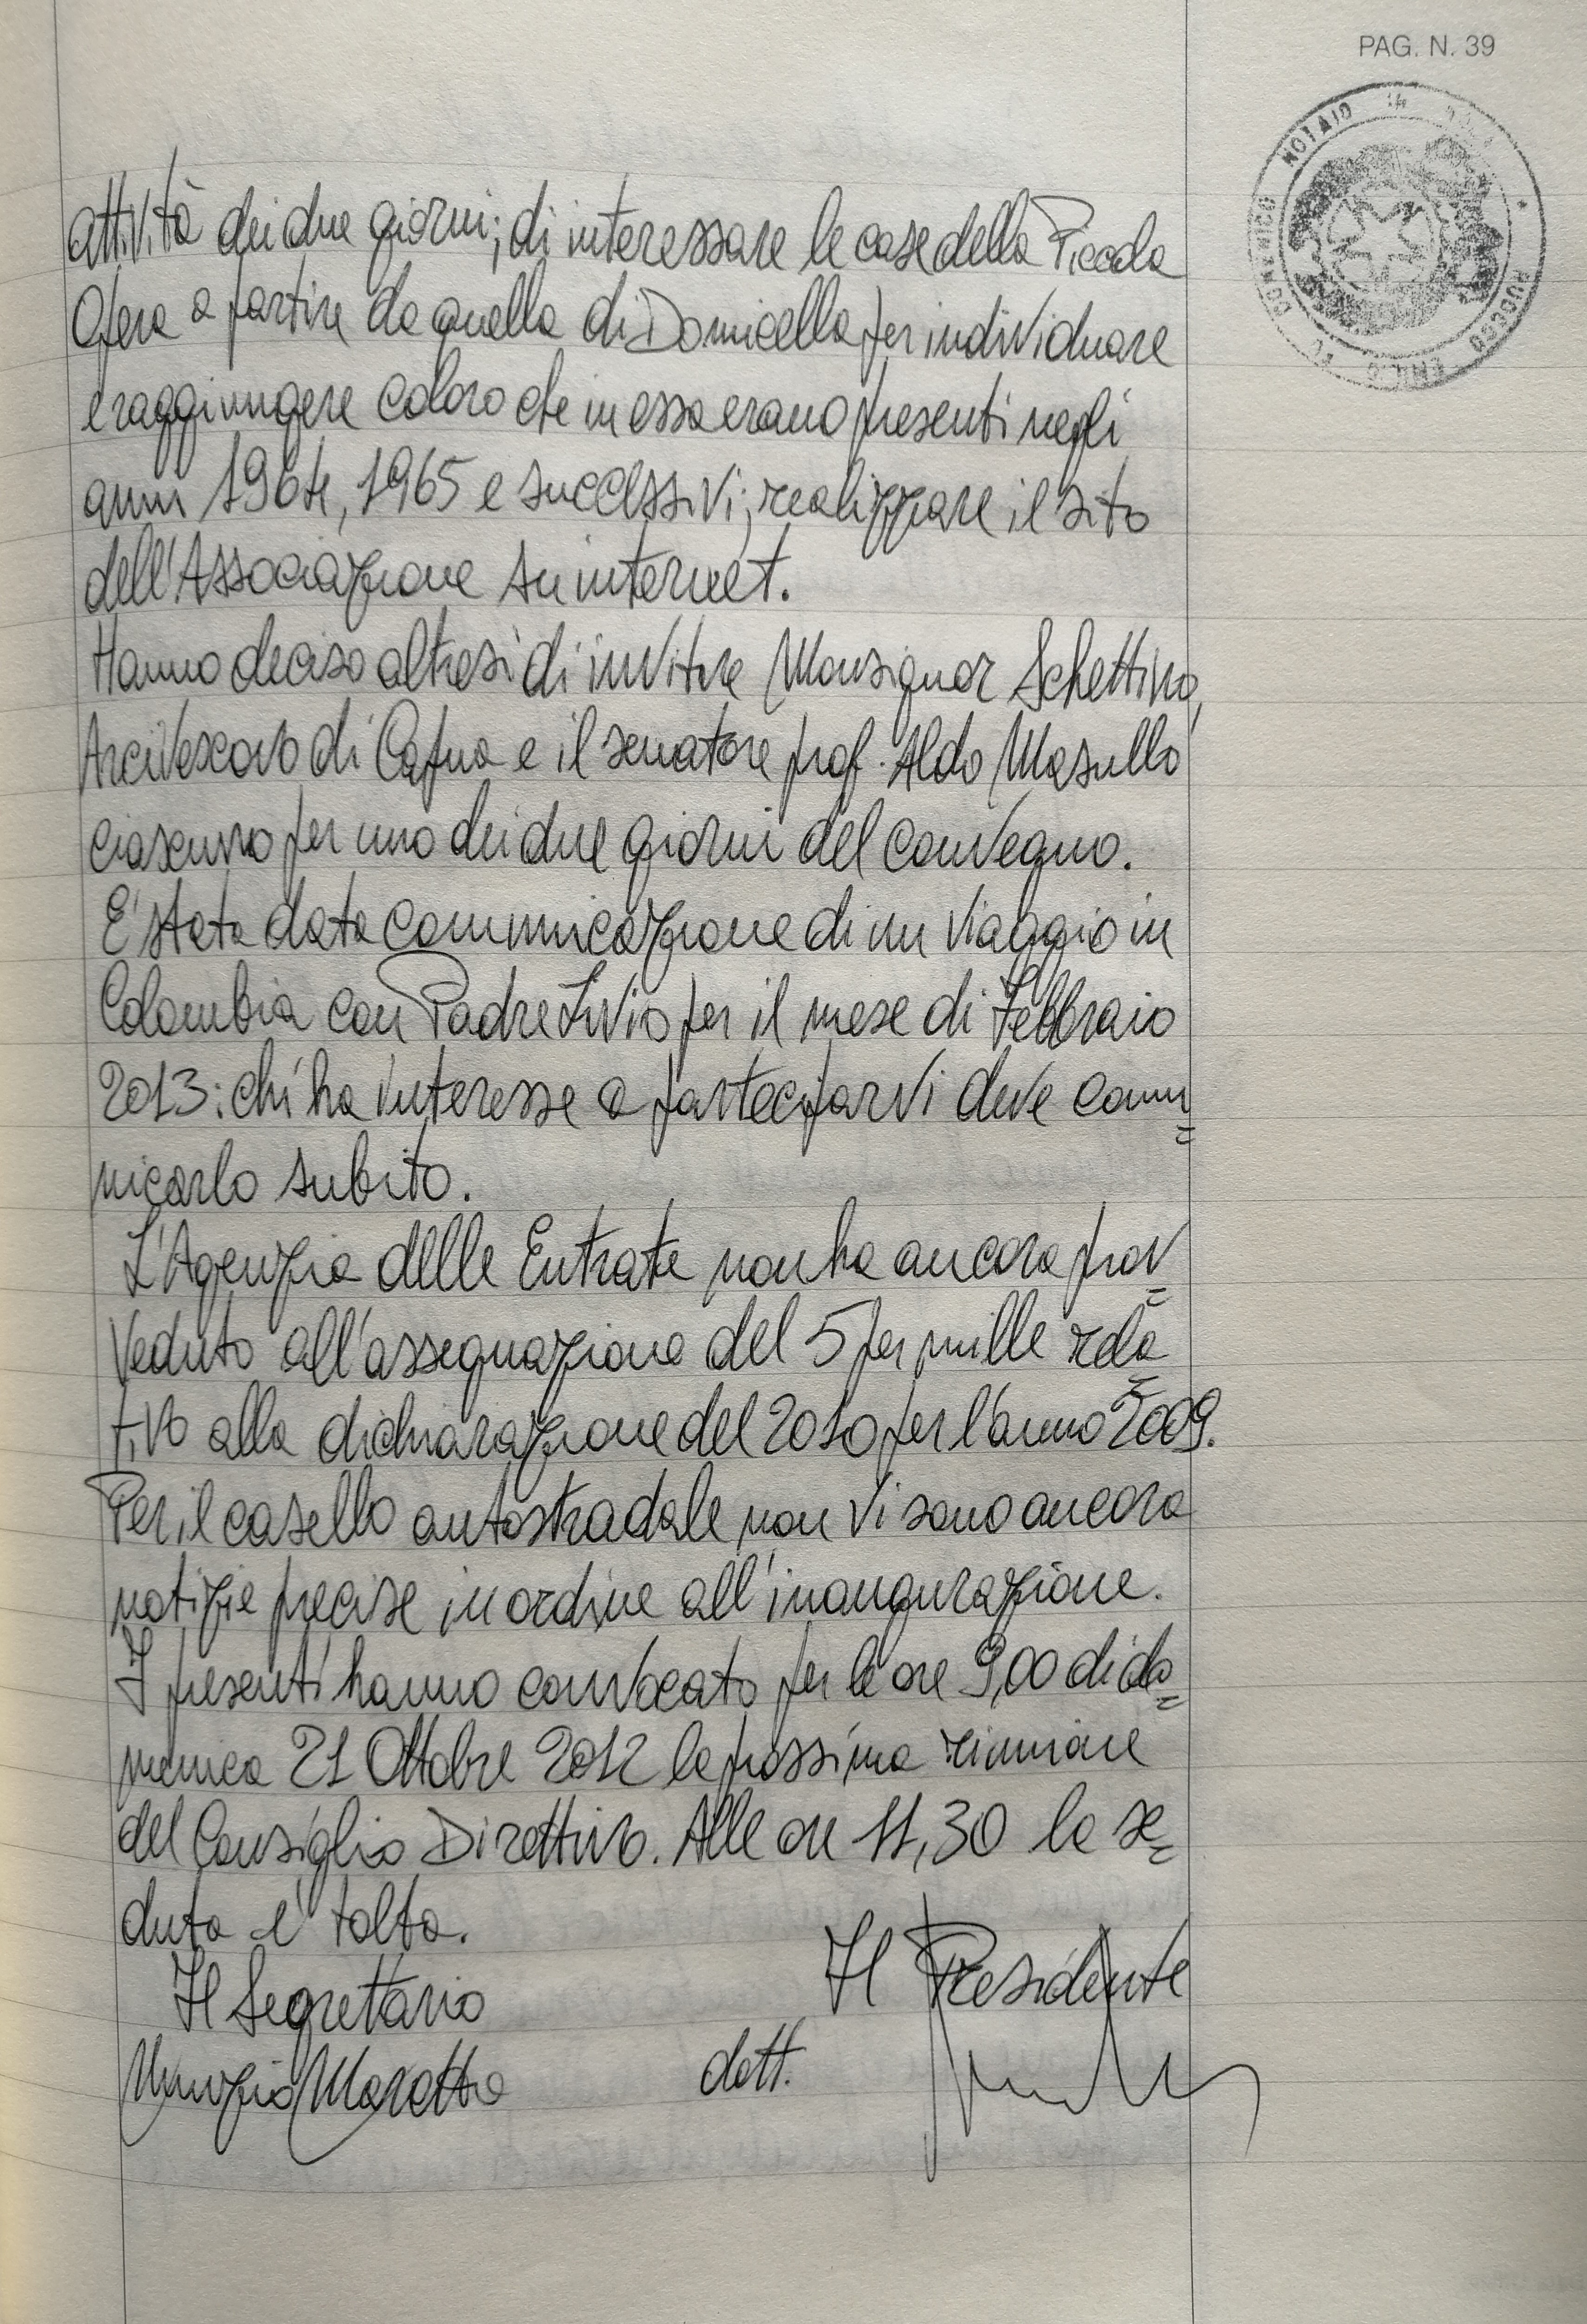 PAG. N. 39
NOTAIO IN
attività dei due giorni; di interessare le case della Piccola
Opera a partire da quella di Domicella per individuare
e raggiungere coloro che in essa erano presenti negli
anni 1964, 1965 e successivi; realizzare il sito
dell'Associazione su internet.
Hanno deciso altresì di invitare Monsignor Schettino,
Arcivescovo di Capua e il senatore prof. Aldo Masullo
ciascuno per uno dei due giorni del convegno.
E' stata data comunicazione di un viaggio in
Colombia con Padre Livio per il mese di Febbraio
2013: chi ha interesse a parteciparvi deve comu=
nicarlo subito.
L'Agenzia delle Entrate non ha ancora prov=
veduto all'assegnazione del 5 per mille rela=
tivo alla dichiarazione del 2010 per l'anno 2009.
Per il casello autostradale non vi sono ancora
notizie precise in ordine all'inaugurazione.
I presenti hanno convocato per le ore 9,00 di do=
menica 21 Ottobre 2012 la prossima riunione
del Consiglio Direttivo. Alle ore 11,30 la se=
duta e' tolta.
Il Segretario Il Presidente
Nunzio dott.